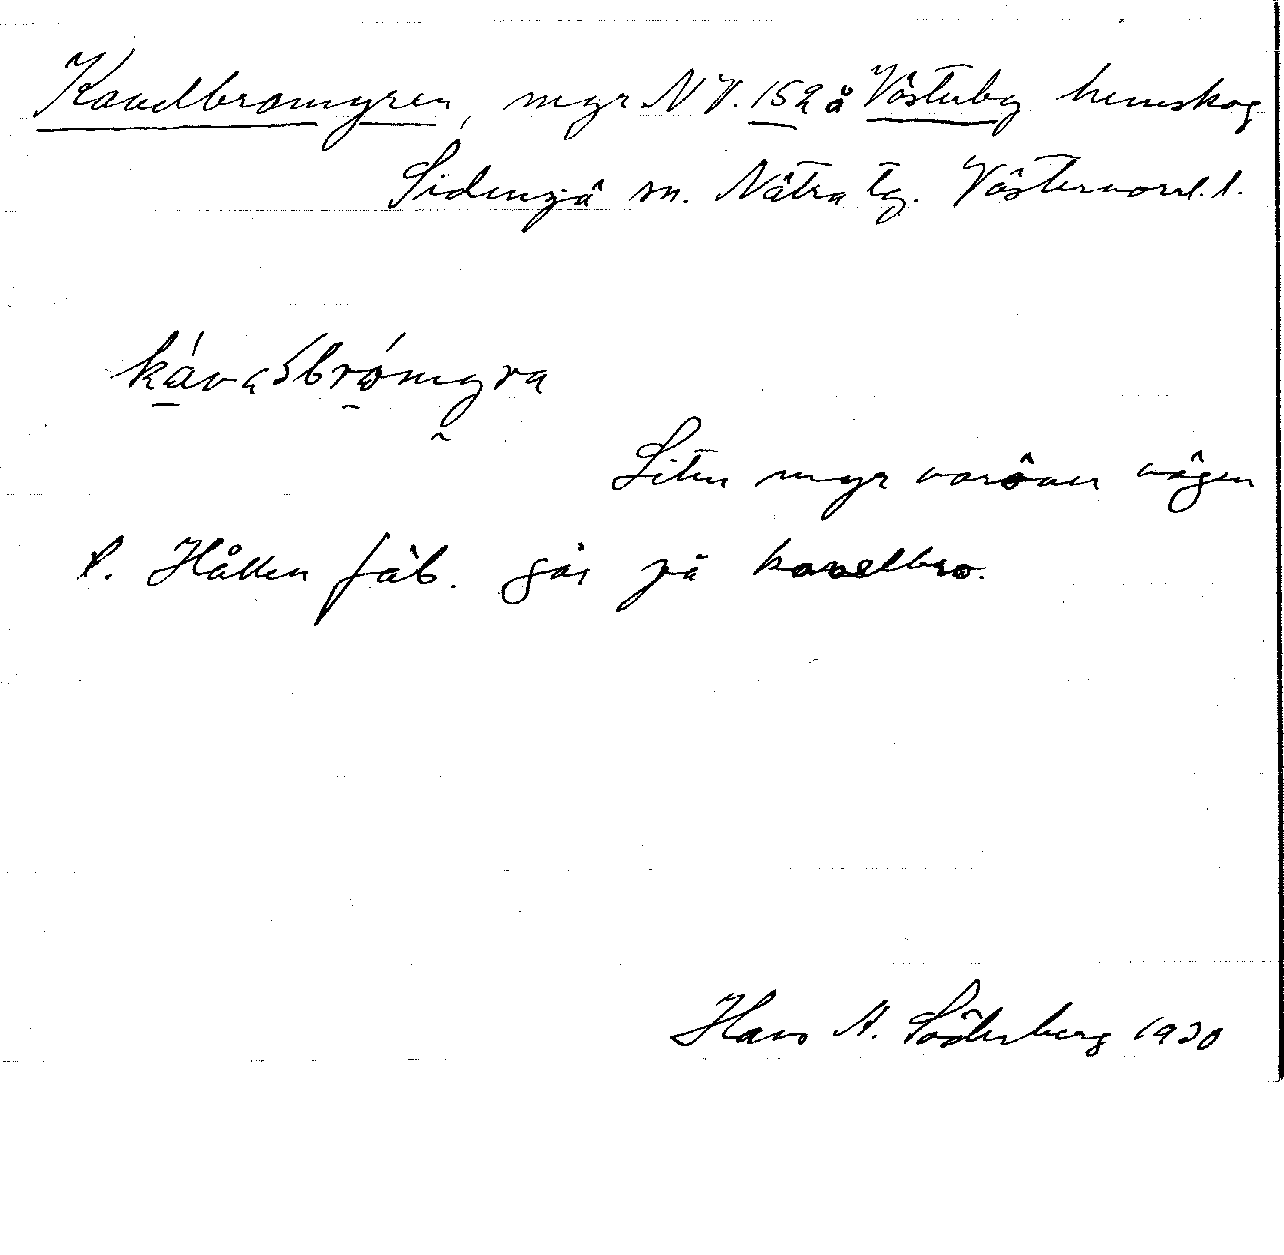 Kavelbromyren, myr N V. 152 å Västerby hemskog
Sidensjö sn. Nätra tg. Västernorrl. l.
kávaslbrómyra
Liten myr varöver vägen
t. Hållen fäb. går på kavelbro.
Hans A. Söderberg 1930